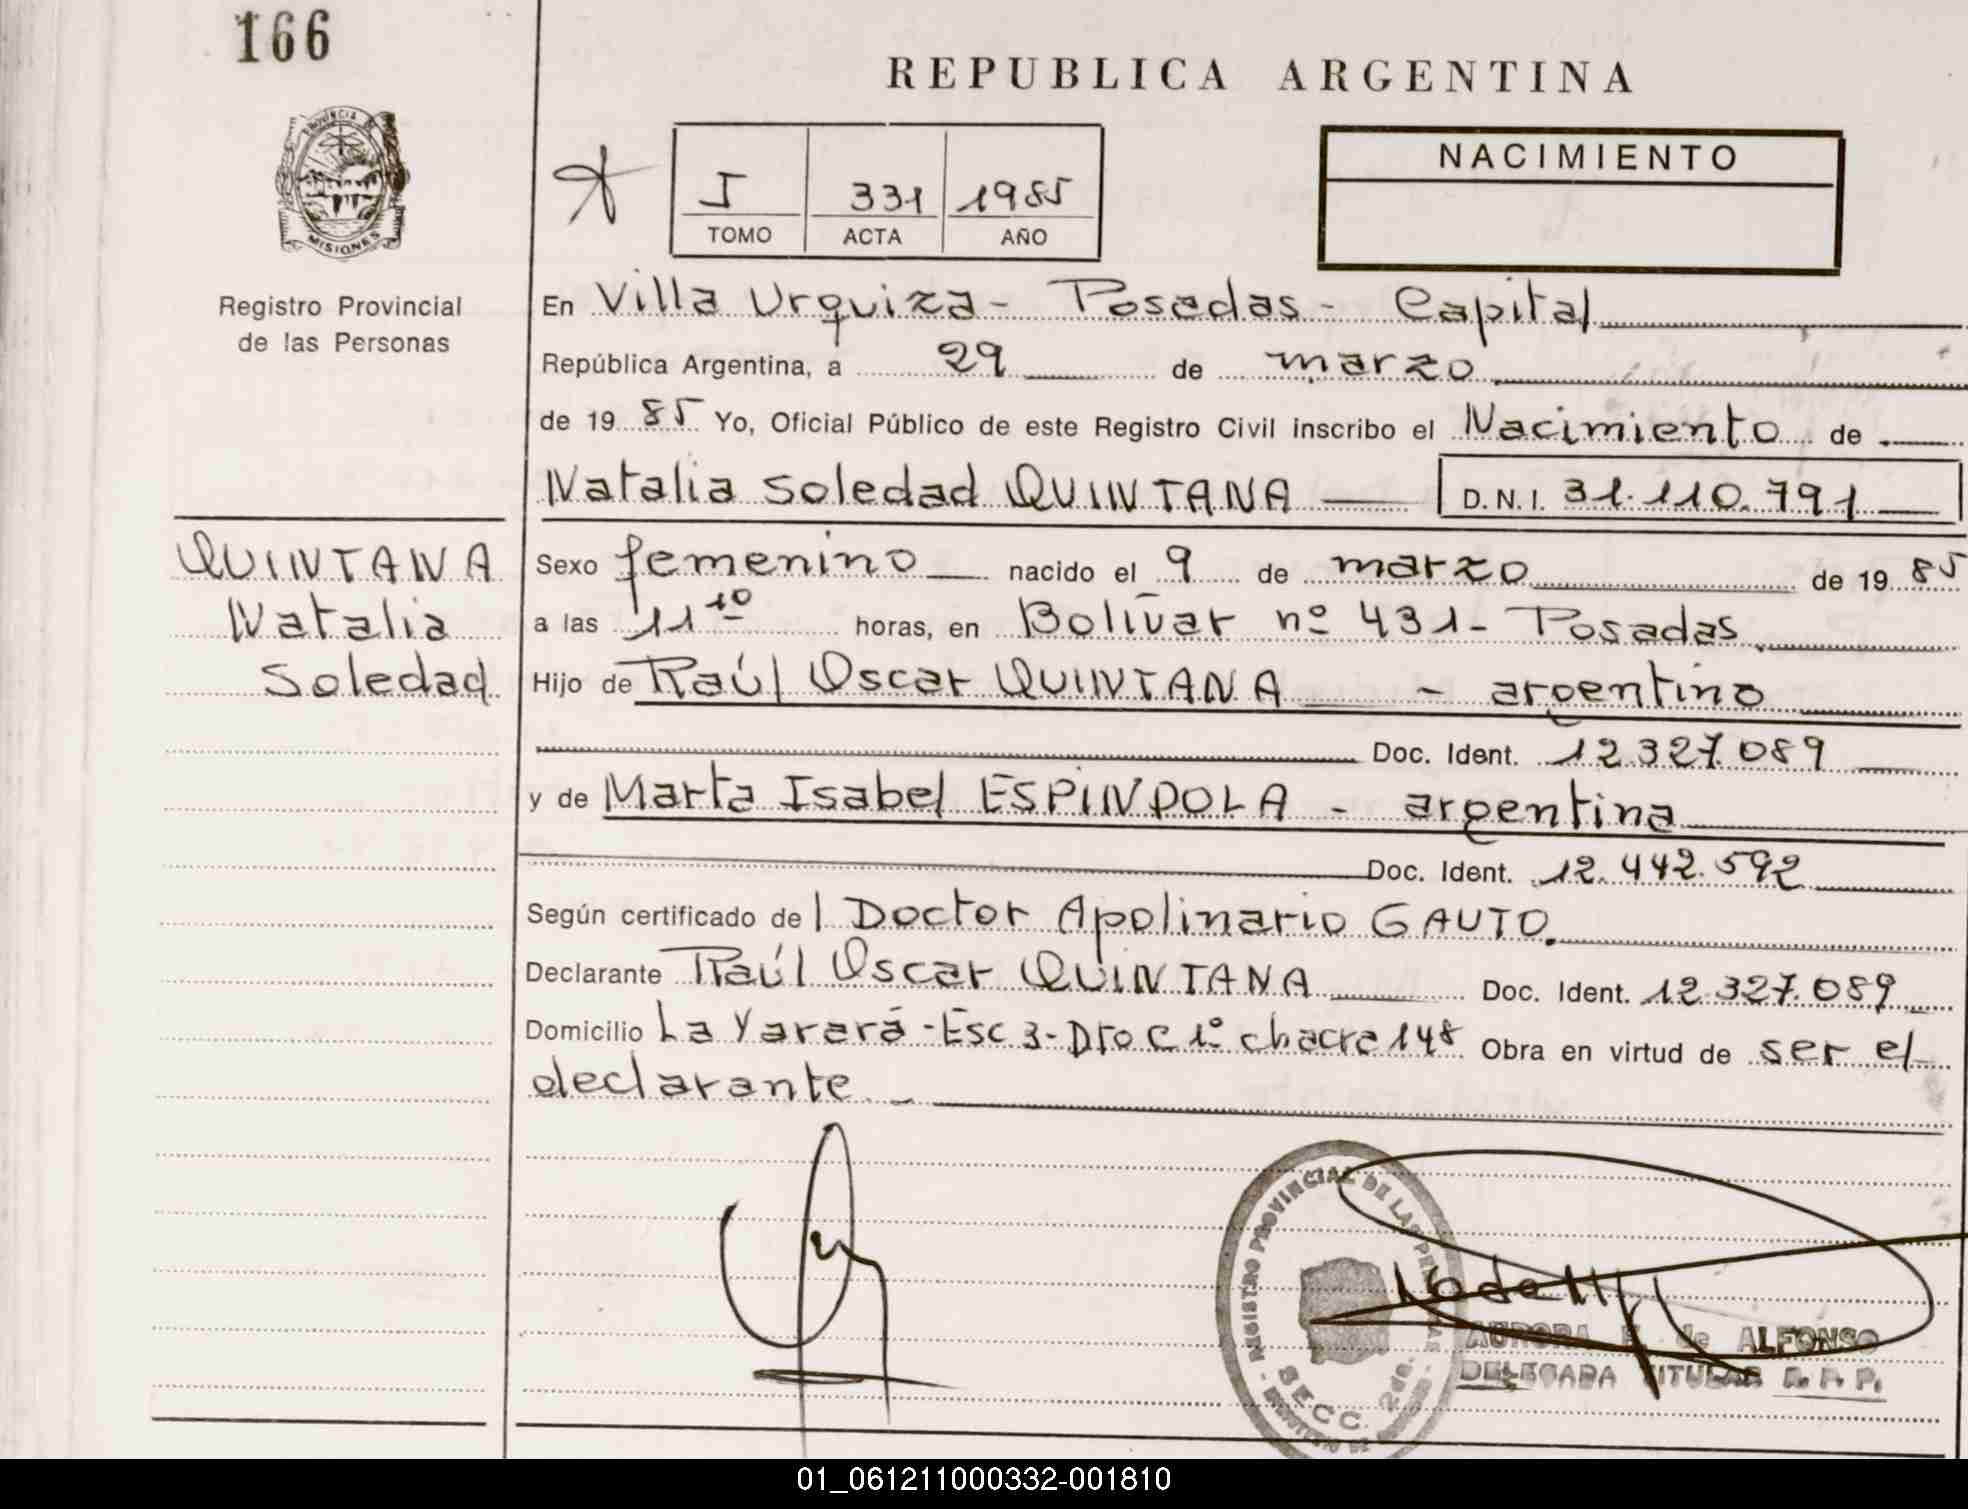 166
REPUBLICA ARGENTINA
PROVINCIA DE
MISIONES
Registro Provincial
de las Personas
I 331 1985
TOMO ACTA AÑO
NACIMIENTO
En Villa Urquiza - Posadas - Capital
República Argentina, a 29 de marzo
de 1985 Yo, Oficial Público de este Registro Civil inscribo el Nacimiento de
Natalia Soledad QUINTANA D.N.I. 31.110.791
QUINTANA
Natalia
Soledad
Sexo femenino nacido el 9 de marzo de 1985
a las 11 10 horas, en Bolívar nº 431 - Posadas
Hijo de Raúl Oscar QUINTANA - argentino
Doc. Ident. 12.327.089
y de Marta Isabel ESPINDOLA - argentina
Doc. Ident. 12.442.592
Según certificado del Doctor Apolinario GAUTO.
Declarante Raúl Oscar QUINTANA Doc. Ident. 12.327.089
Domicilio La Yarará - Esc 3 - Dto C 1º chacra 148 Obra en virtud de ser el
declarante. -
REGISTRO PROVINCIAL DE LAS
SECC. 2da.
AURORA de ALFONSO
DELEGADA TITULAR R. P. P.
01_061211000332-001810